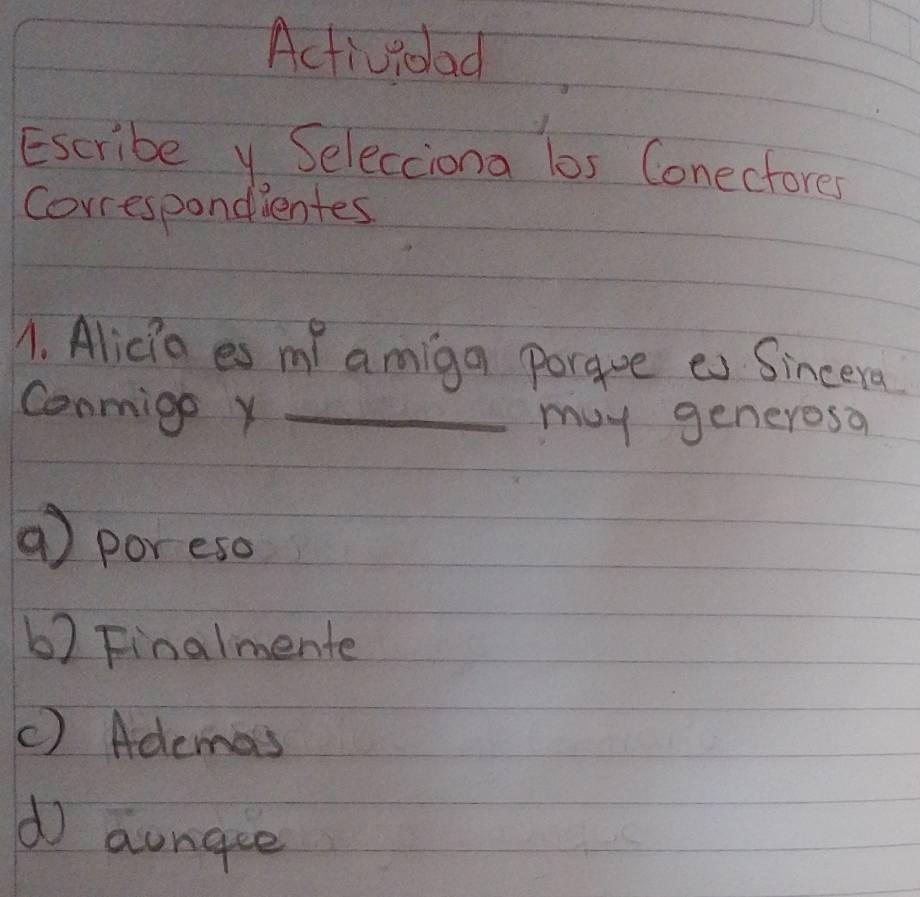 Actividad
Escribe y Selecciona los Conectores
Correspondientes
1. Alicia es mi amiga porque es Sincera
Conmigo y ________ muy generosa
a) por eso
b) Finalmente
c) Ademas
d) aunque